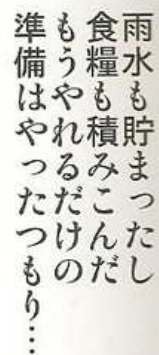 雨水も貯まったし
食糧も積みこんだ
もうやれるだけの
準備はやったつもり…